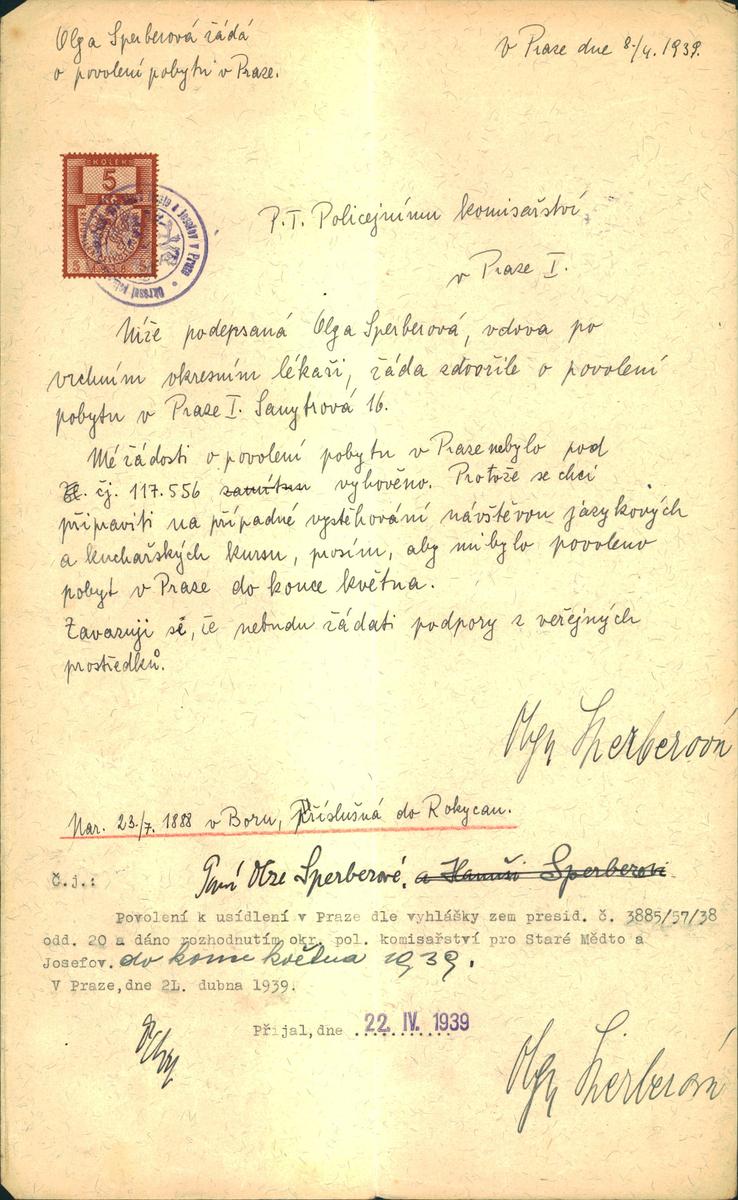 Olga Sperberová žádá
o povolení pobytu v Praze.
v Praze dne 8./4. 1939.
KOLEK
5
P.T. Policejnímu komisařství
v Praze I.
Níže podepsaná Olga Sperberová, vdova po
vrchním okresním lékaři, žáda zdvořile o povolení
pobytu v Praze I. Sanytrová 16.
Mé žádosti o povolení pobytu v Praze nebylo pod
čj. 117.556 vyhověno. Protože se chci
připraviti na případné vystěhování návštěvou jazykových
a kuchařských kursu, prosím, aby mi bylo povoleno
pobyt v Praze do konce května.
Zavazuji se, že nebudu žádati podpory z veřejných
prostředků.
Olga Sperberová
Nar. 23./7. 1888 v Boru, Příslušná do Rokycan.
Č.j.: Paní Olze Sperberové. a Hanuši Sperberovi
Povolení k usídlení v Praze dle vyhlášky zem presid. č. 3885/57/38
odd. 20 a dáno rozhodnutím okr. pol. komisařství pro Staré Mědto a
Josefov. do konce května 1939.
V Praze,dne 2L. dubna 1939.
Přijal,dne 22. IV. 1939
Olga Sperberová